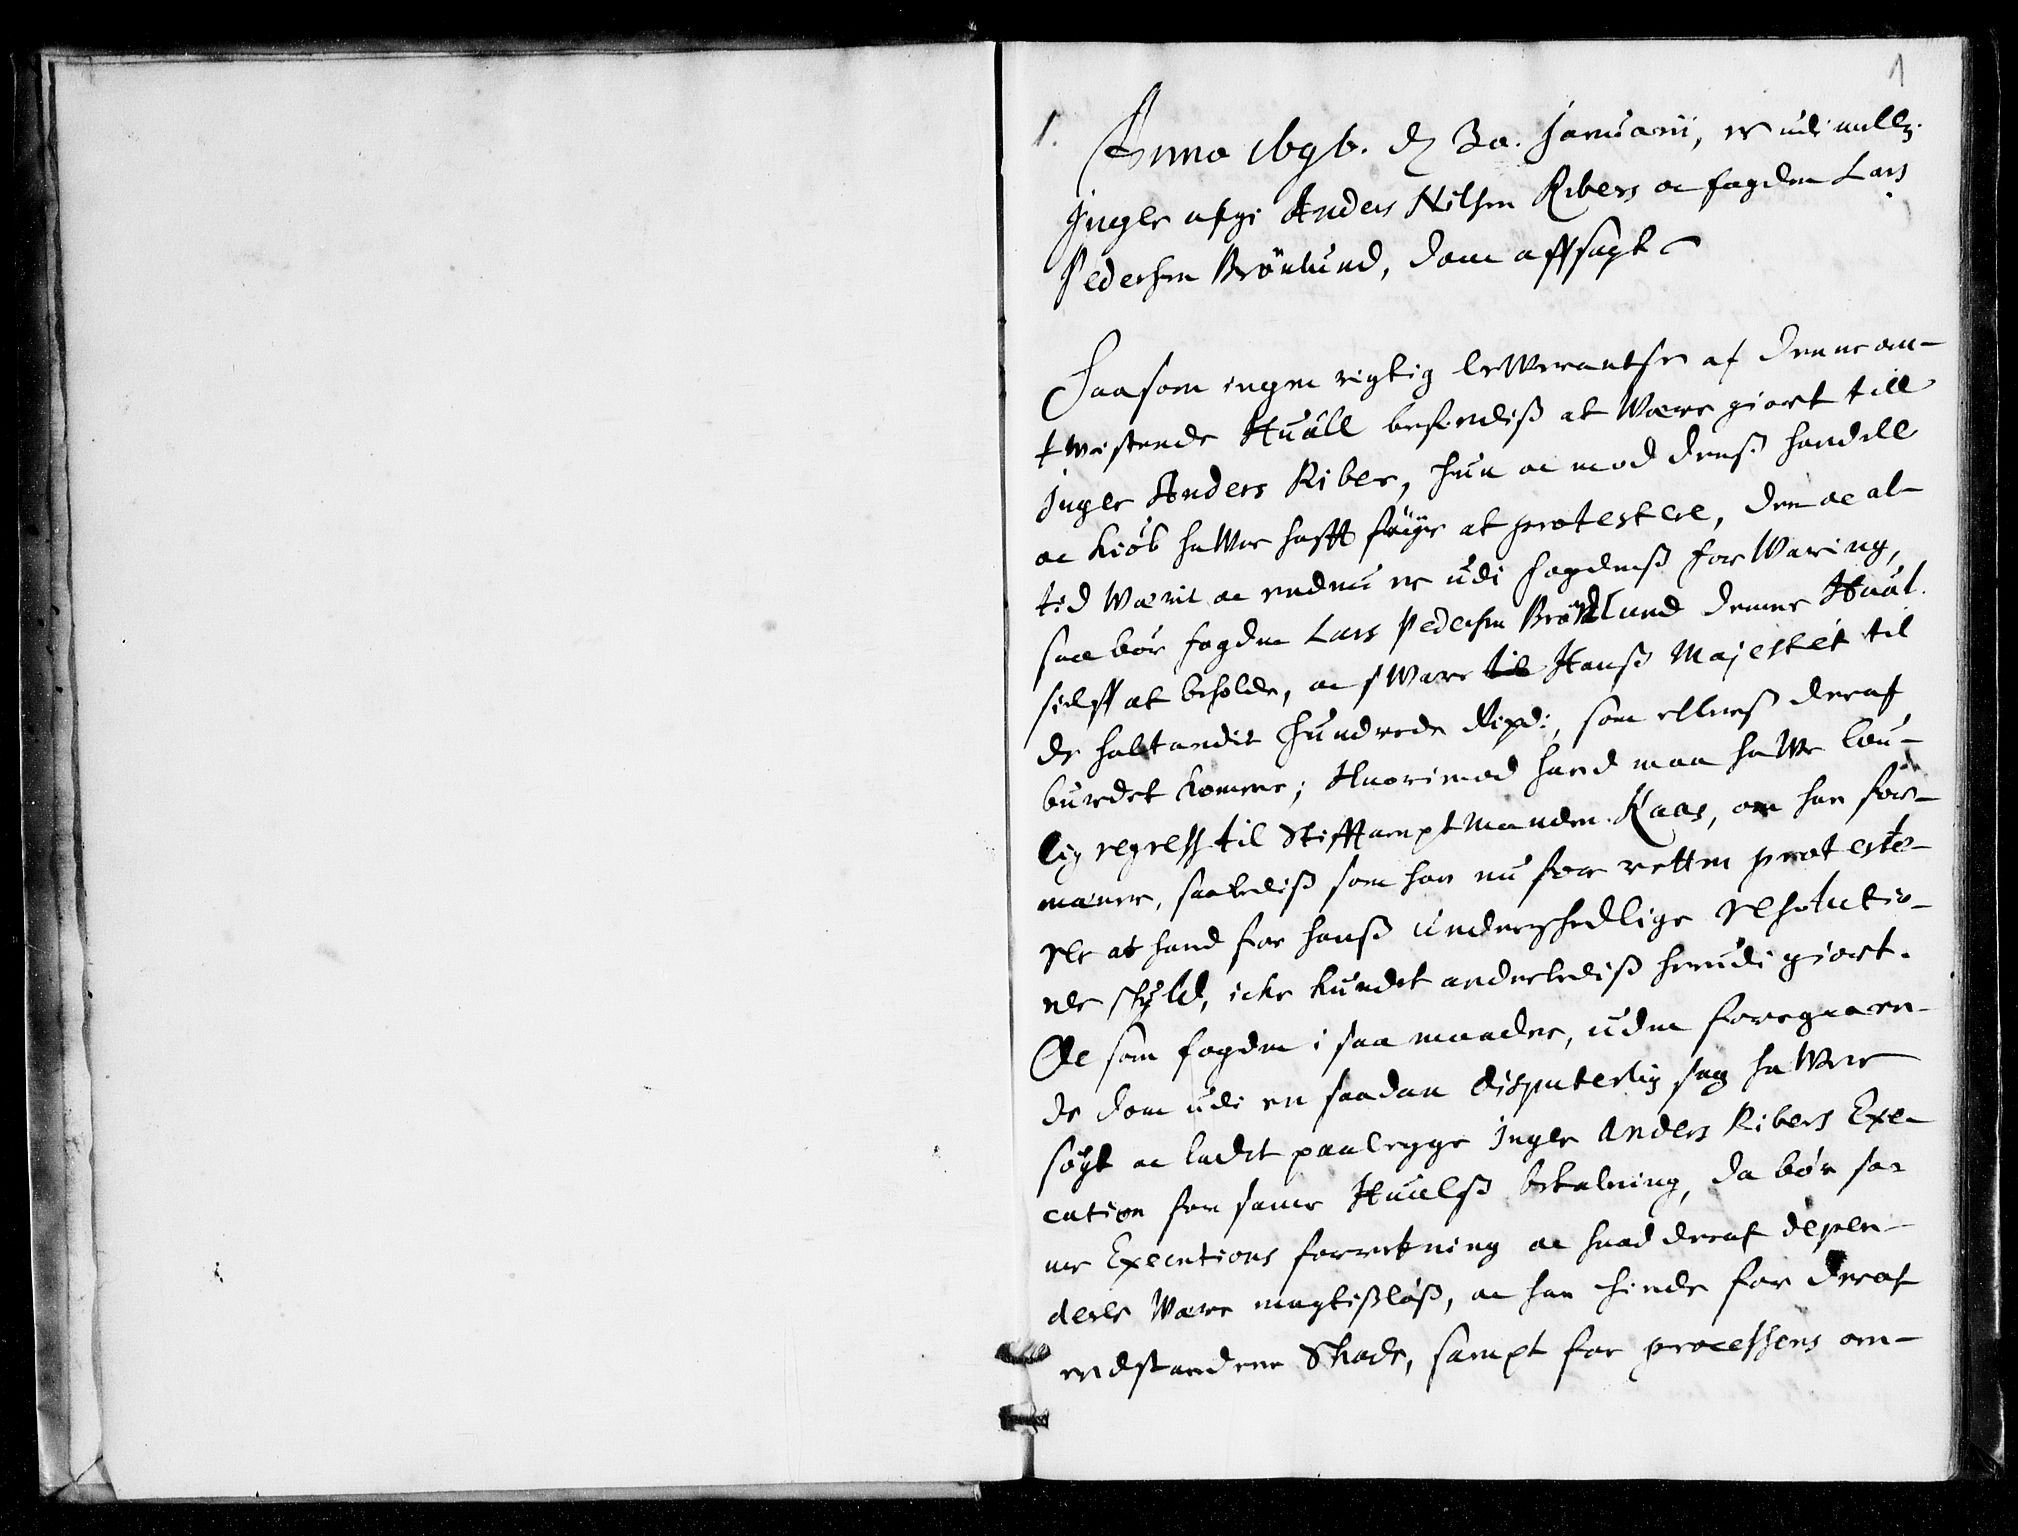 1
1. Anno 1696. d. 30. Januarii, er udi mellem
Inger afg: Anders Nilsen Ribers oc fogden Lars
Pedersen Brönlund, dom affsagt
Saasom ingen rigtig lewerantse af denne om-
twistende Huall befindiß at Være giort till
Inger Anders Riber, hun oc mod denß handell
oc kiøb hawer hafft føÿe at protestere, den oc al-
tid Wærit oc endnu er udi fogdenß forWaring,
saa bør fogden Lars Pedersen Brønlund denne Hual
sielff at beholde, oc sWare til Hanß Majestet til
de halftandit hundrede Rixd:, som ellerß deraf
burdet komme; Huorimod hand maa hawe lou-
lig regress til Stifftamptmanden Kaas, om han for-
meener, saaledeß som han nu for retten proteste-
rer at hand for hanß underskedlige resolutio-
ner skÿld, icke kundet anderlediß herudi giort.
Oc som fogden i saa maader, uden foregaaen-
de dom udi en saadan disputerlig sag hawer
søgt oc ladet paalegge Inger Anders Ribers Exe-
cution for samme Hualß betalning, da bør sam-
me Executions forretning oc huad deraf depen-
derer Være magtißløß, oc han hinde for deraf
endstandene Skade, sampt for processens om-